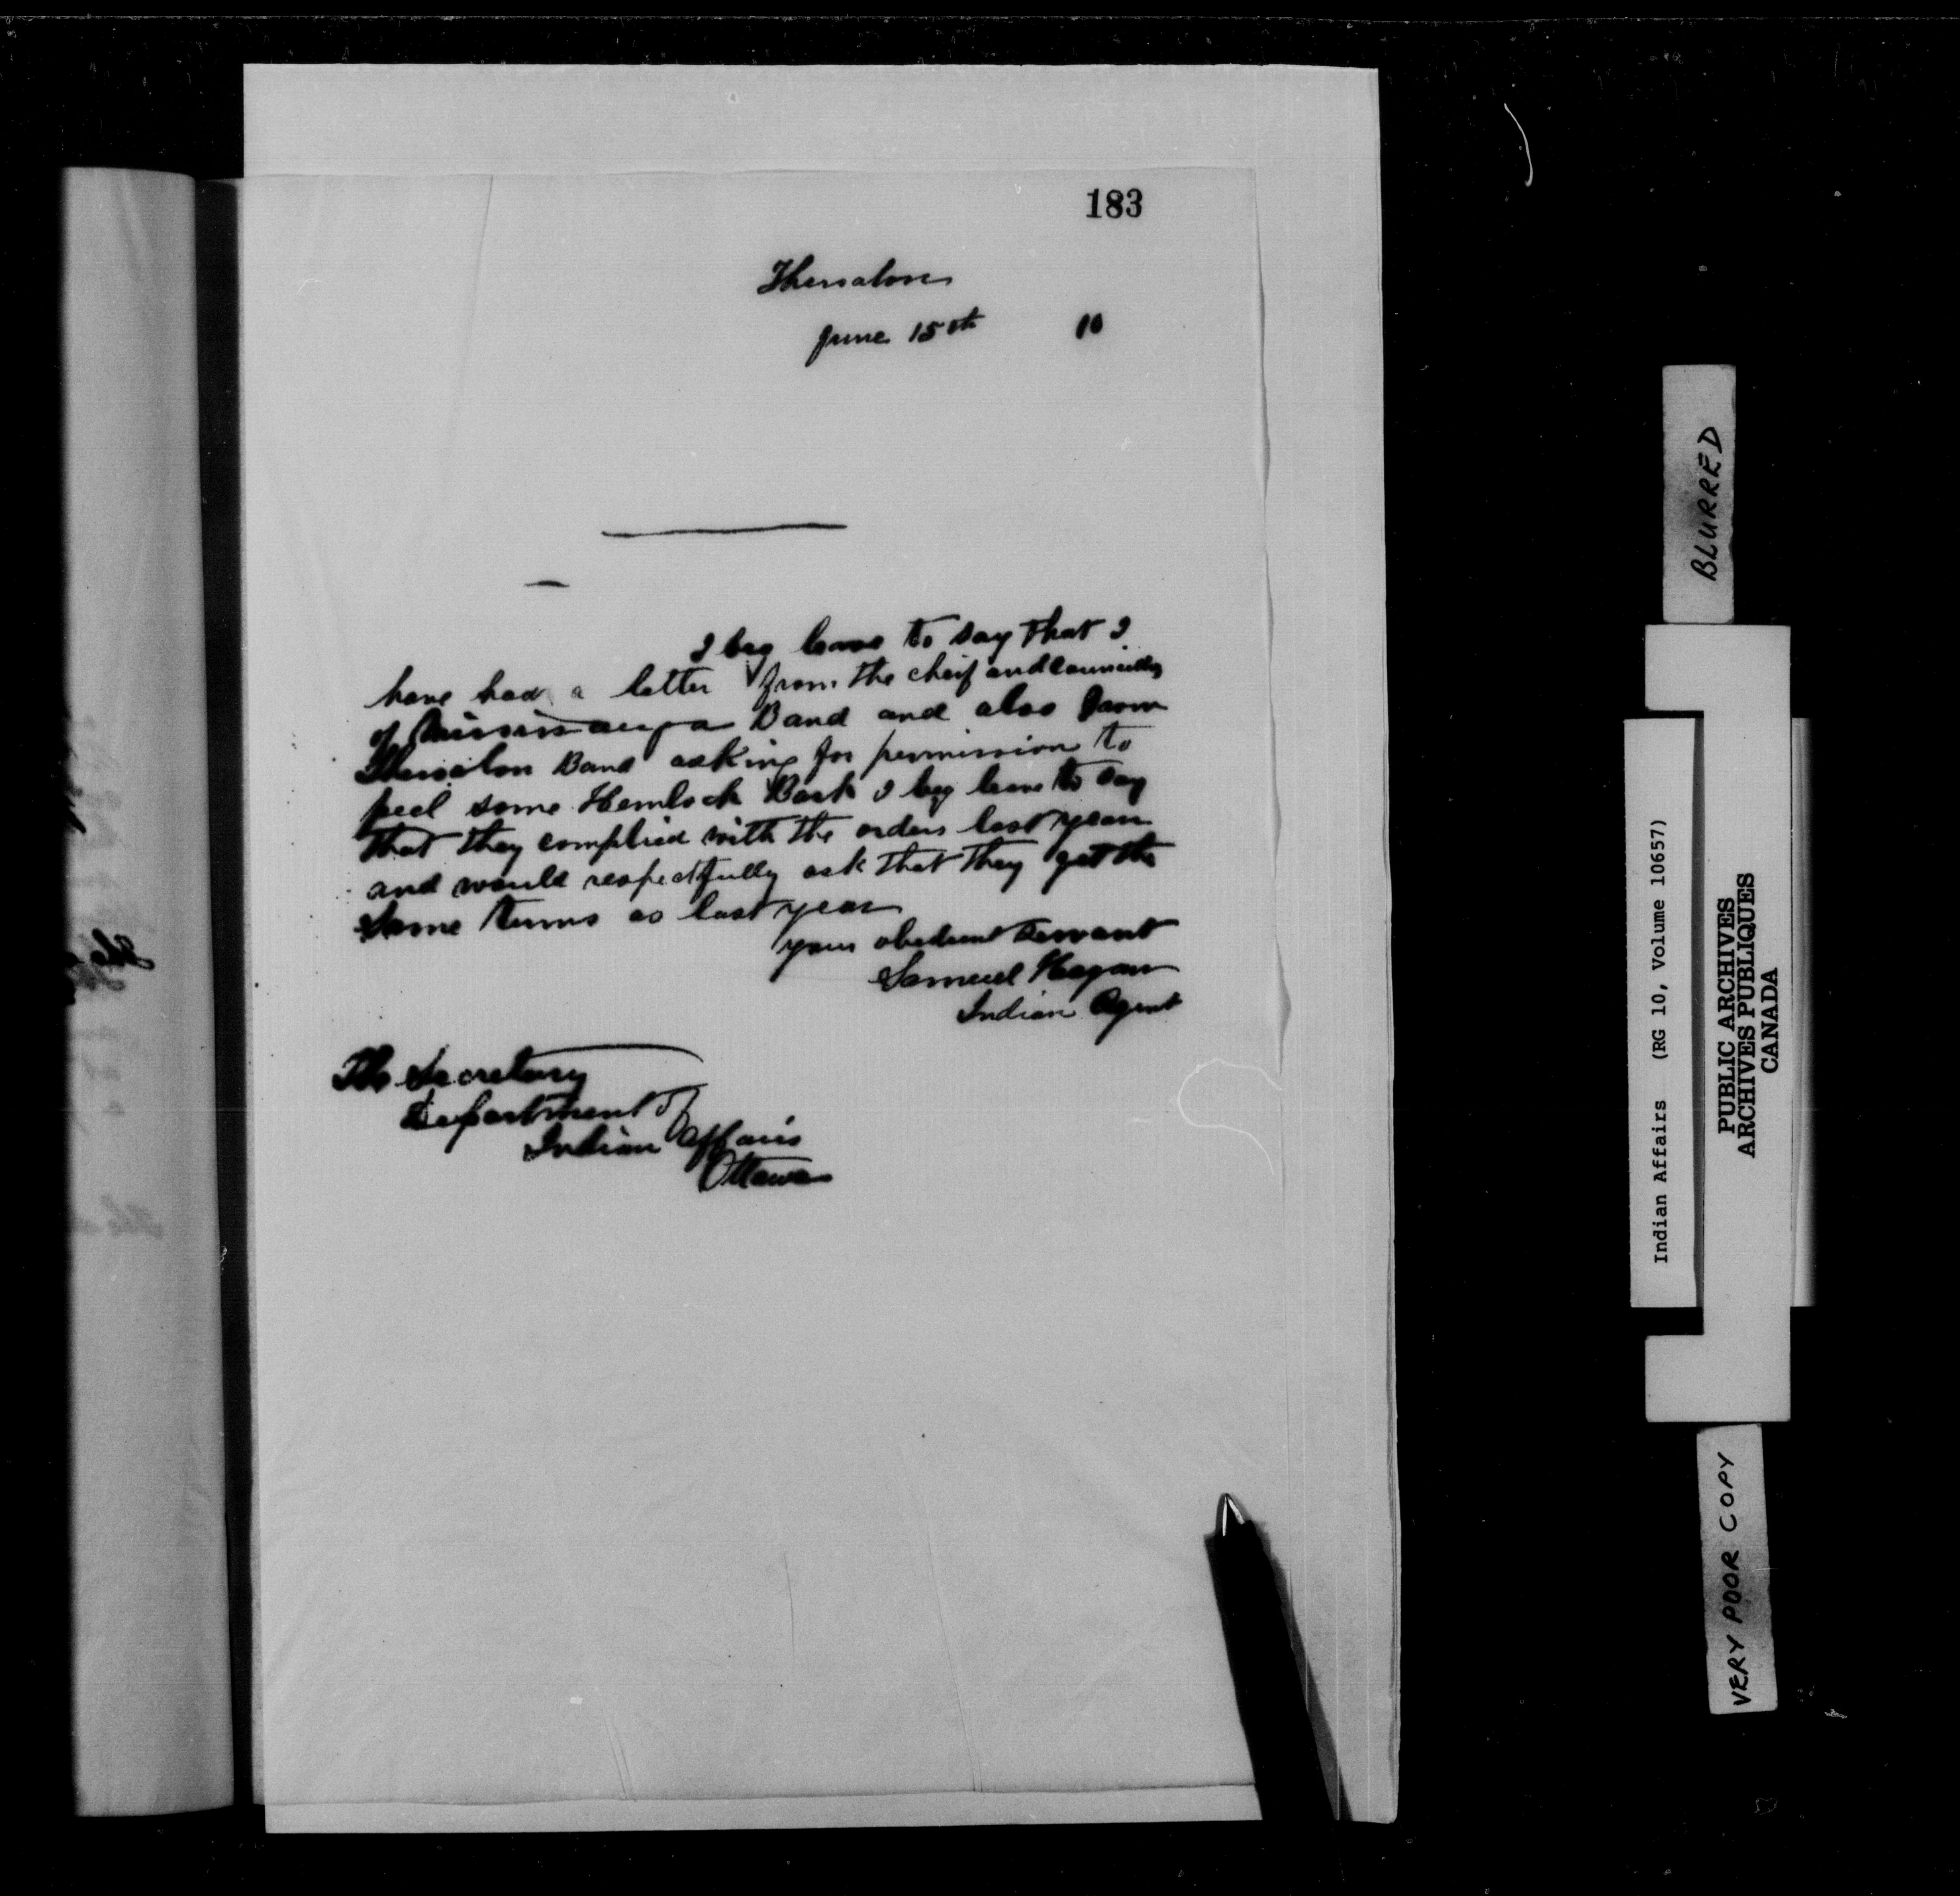 183
Thessalon
June 15th 10
I beg leave to say that I
have had a letter from the cheif and councillors
of Mississauga Band and also from
Thessalon Band asking for permission to
peel some Hemlock Bark I beg leave to say
that they complied with the orders last year
and would respectfully ask that they get the
same terms as last year
your obedient servant
Samuel Hagan
Indian Agent
The Secretary
Department of
Indian Affairs
Ottawa
BLURRED
Indian Affairs (RG 10, Volume 10657)
PUBLIC ARCHIVES
ARCHIVES PUBLIQUES
CANADA
VERY POOR COPY